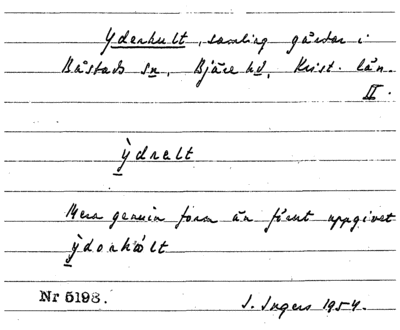 Ydenhult, samling gårdar i
Båstads sn, Bjäre hd, Krist. län.
II.
ỳdnalt
Mera genuin form än förut uppgivet
ỳdonhòlt
Nr 5198. I. Ingers 1954.